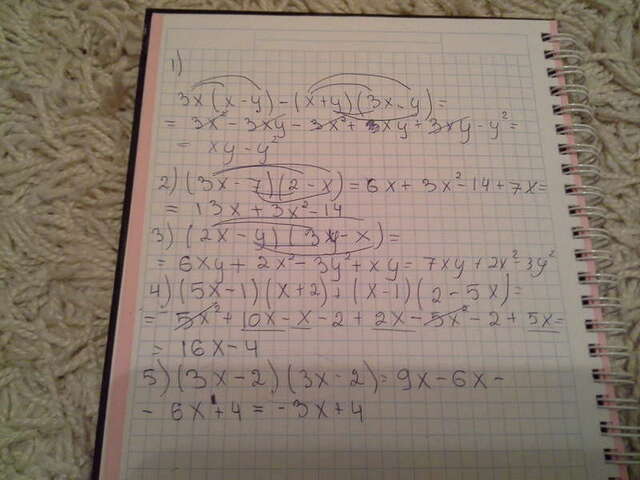 1)
3x(x-y)-(x+y)(3x-y)=
= 3x²-3xy-3x²+3xy+3xy-y²=
= xy-y²
2) (3x-7)(2-x)=6x+3x²-14+7x=
= 13x+3x²-14
3) (2x-y)(3y-x)=
= 6xy+2x²-3y²+xy=7xy+2x²-3y²
4) (5x-1)(x+2)+(x-1)(2-5x)=
= 5x²+10x-x-2+2x-5x²-2+5x=
= 16x-4
5) (3x-2)(3x-2)=9x-6x-
- 6x+4=-3x+4